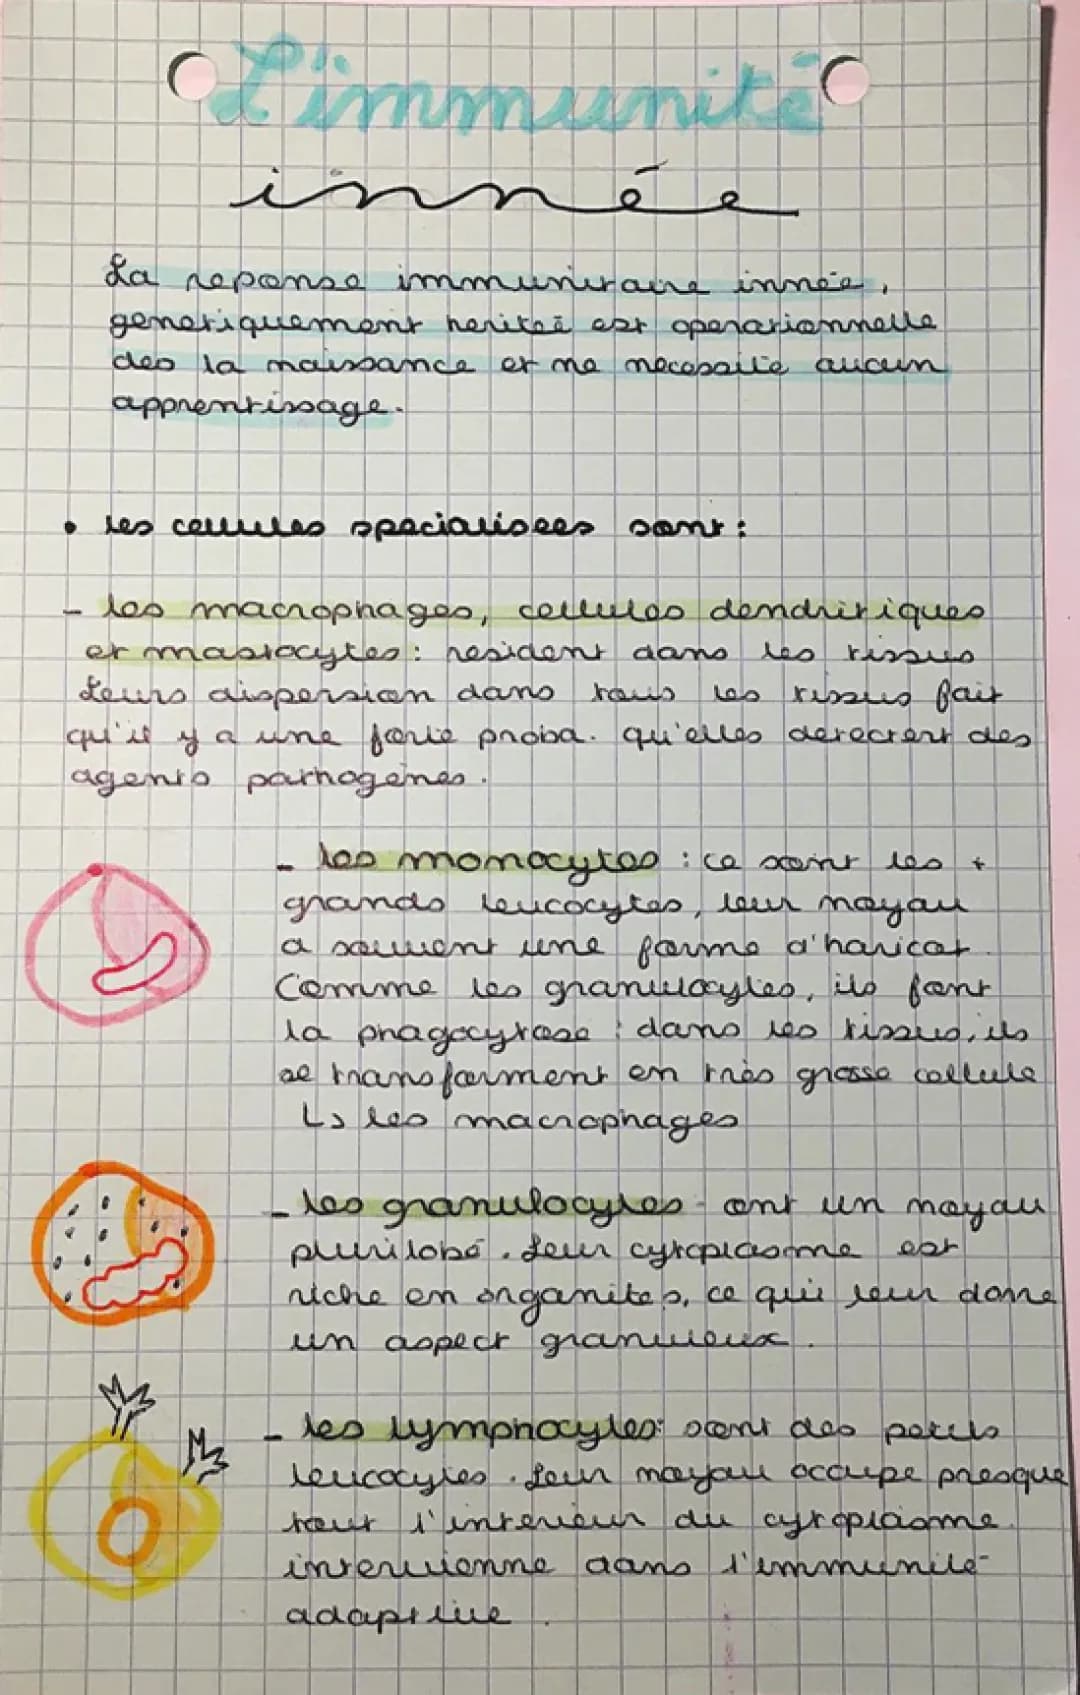 L'immunité
innée
La reponse immunitaire innée,
genetiquement heritée est operationnelle
des la naissance et ne necessite aucun
apprentissage.
• les cellules specialisees sont :
- les macrophages, cellules dendritiques
et mastocytes : resident dans les tissus
Leurs dispersion dans tous les tissus fait
qu'il y a une forte proba. qu'elles detectent des
agents pathogenes.
- les monocytes : ce sont les +
grands leucocytes, leur noyau
a souvent une forme d'haricot.
Comme les granulocytes, ils font
la phagocytose : dans les tissus, ils
se transforment en très grosse cellule
↳ les macrophages
- les granulocytes - ont un noyau
plurilobé. Leur cytoplasme est
riche en organites, ce qui leur donne
un aspect granuleux.
- les lymphocytes : sont des petits
leucocytes. Leur noyau occupe presque
tout l'interieur du cytoplasme.
intervienne dans l'immunité
adaptive.